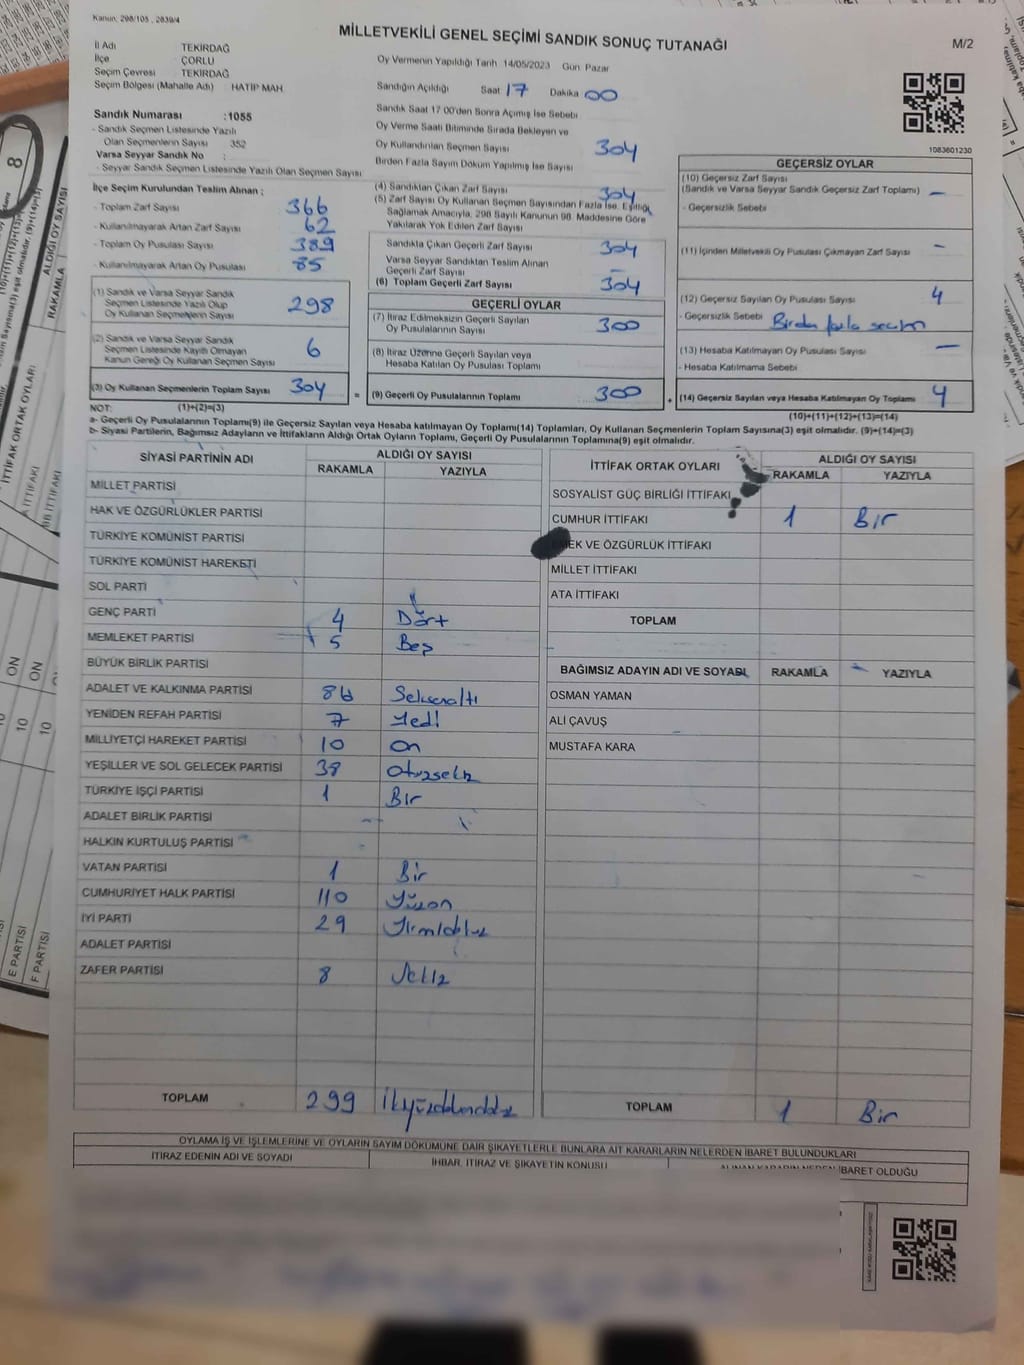 Kanun: 298/105 , 2839/4
MİLLETVEKİLİ GENEL SEÇİMİ SANDIK SONUÇ TUTANAĞI
M/2
İl Adı TEKİRDAĞ
İlçe ÇORLU
Seçim Çevresi TEKİRDAĞ
Seçim Bölgesi (Mahalle Adı) HATIP MAH.
Sandık Numarası :1055
- Sandık Seçmen Listesinde Yazılı
Olan Seçmenlerin Sayısı 352
Varsa Seyyar Sandık No :
- Seyyar Sandık Seçmen Listesinde Yazılı Olan Seçmen Sayısı
Oy Vermenin Yapıldığı Tarih 14/05/2023 Gün Pazar
Sandığın Açıldığı Saat 17 Dakika 00
Sandık Saat 17:00'den Sonra Açılmış İse Sebebi
Oy Verme Saati Bitiminde Sırada Bekleyen ve
Oy Kullandırılan Seçmen Sayısı 304
Birden Fazla Sayım Döküm Yapılmış İse Sayısı
1083601230
İlçe Seçim Kurulundan Teslim Alınan ;
- Toplam Zarf Sayısı 366
- Kullanılmayarak Artan Zarf Sayısı 62
- Toplam Oy Pusulası Sayısı 389
- Kullanılmayarak Artan Oy Pusulası 85
(1) Sandık ve Varsa Seyyar Sandık
Seçmen Listesinde Yazılı Olup
Oy Kullanan Seçmenlerin Sayısı 298
(2) Sandık ve Varsa Seyyar Sandık
Seçmen Listesinde Kayıtlı Olmayan
Kanun Gereği Oy Kullanan Seçmen Sayısı 6
(3) Oy Kullanan Seçmenlerin Toplam Sayısı 304
(4) Sandıktan Çıkan Zarf Sayısı 304
(5) Zarf Sayısı Oy Kullanan Seçmen Sayısından Fazla İse, Eşitliği
Sağlamak Amacıyla, 298 Sayılı Kanunun 98. Maddesine Göre
Yakılarak Yok Edilen Zarf Sayısı
Sandıkta Çıkan Geçerli Zarf Sayısı 304
Varsa Seyyar Sandıktan Teslim Alınan
Geçerli Zarf Sayısı –
(6) Toplam Geçerli Zarf Sayısı 304
GEÇERLİ OYLAR
(7) İtiraz Edilmeksizin Geçerli Sayılan
Oy Pusulalarının Sayısı 300
(8) İtiraz Üzerine Geçerli Sayılan veya
Hesaba Katılan Oy Pusulası Toplamı
= (9) Geçerli Oy Pusulalarının Toplamı 300 +
GEÇERSİZ OYLAR
(10) Geçersiz Zarf Sayısı
(Sandık ve Varsa Seyyar Sandık Geçersiz Zarf Toplamı) –
- Geçersizlik Sebebi
(11) İçinden Milletvekili Oy Pusulası Çıkmayan Zarf Sayısı –
(12) Geçersiz Sayılan Oy Pusulası Sayısı 4
- Geçersizlik Sebebi Birden fazla seçim
(13) Hesaba Katılmayan Oy Pusulası Sayısı –
- Hesaba Katılmama Sebebi
(14) Geçersiz Sayılan veya Hesaba Katılmayan Oy Toplamı 4
NOT: (1)+(2)=(3)
(10)+(11)+(12)+(13)=(14)
a- Geçerli Oy Pusulalarının Toplamı(9) ile Geçersiz Sayılan veya Hesaba katılmayan Oy Toplamı(14) Toplamları, Oy Kullanan Seçmenlerin Toplam Sayısına(3) eşit olmalıdır. (9)+(14)=(3)
b- Siyasi Partilerin, Bağımsız Adayların ve İttifakların Aldığı Ortak Oyların Toplamı, Geçerli Oy Pusulalarının Toplamına(9) eşit olmalıdır.
SİYASİ PARTİNİN ADI ALDIĞI OY SAYISI
RAKAMLA YAZIYLA
MİLLET PARTİSİ
HAK VE ÖZGÜRLÜKLER PARTİSİ
TÜRKİYE KOMÜNİST PARTİSİ
TÜRKİYE KOMÜNİST HAREKETİ
SOL PARTİ
GENÇ PARTİ 4 Dört
MEMLEKET PARTİSİ 5 Beş
BÜYÜK BİRLİK PARTİSİ
ADALET VE KALKINMA PARTİSİ 86 Seksenaltı
YENİDEN REFAH PARTİSİ 7 Yedi
MİLLİYETÇİ HAREKET PARTİSİ 10 On
YEŞİLLER VE SOL GELECEK PARTİSİ 38 Otuzsekiz
TÜRKİYE İŞÇİ PARTİSİ 1 Bir
ADALET BİRLİK PARTİSİ
HALKIN KURTULUŞ PARTİSİ
VATAN PARTİSİ 1 Bir
CUMHURİYET HALK PARTİSİ 110 Yüzon
İYİ PARTİ 29 Yirmidokuz
ADALET PARTİSİ
ZAFER PARTİSİ 8 Sekiz
TOPLAM 299 İkiyüzdoksandokuz
İTTİFAK ORTAK OYLARI ALDIĞI OY SAYISI
RAKAMLA YAZIYLA
SOSYALİST GÜÇ BİRLİĞİ İTTİFAKI
CUMHUR İTTİFAKI 1 Bir
EK VE ÖZGÜRLÜK İTTİFAKI
MİLLET İTTİFAKI
ATA İTTİFAKI
TOPLAM
BAĞIMSIZ ADAYIN ADI VE SOYADI RAKAMLA YAZIYLA
OSMAN YAMAN
ALİ ÇAVUŞ
MUSTAFA KARA
TOPLAM 1 Bir
OYLAMA İŞ VE İŞLEMLERİNE VE OYLARIN SAYIM DÖKÜMÜNE DAİR ŞİKAYETLERLE BUNLARA AİT KARARLARIN NELERDEN İBARET BULUNDUKLARI
İTİRAZ EDENİN ADI VE SOYADI İHBAR, İTİRAZ VE ŞİKAYETİN KONUSU ALINAN KARARIN NEDEN İBARET OLDUĞU
8
ALDIĞI OY SAYISI
RAKAMLA
İTTİFAK ORTAK OYLARI
ON
10
ON
10
E PARTİSİ
F PARTİSİ